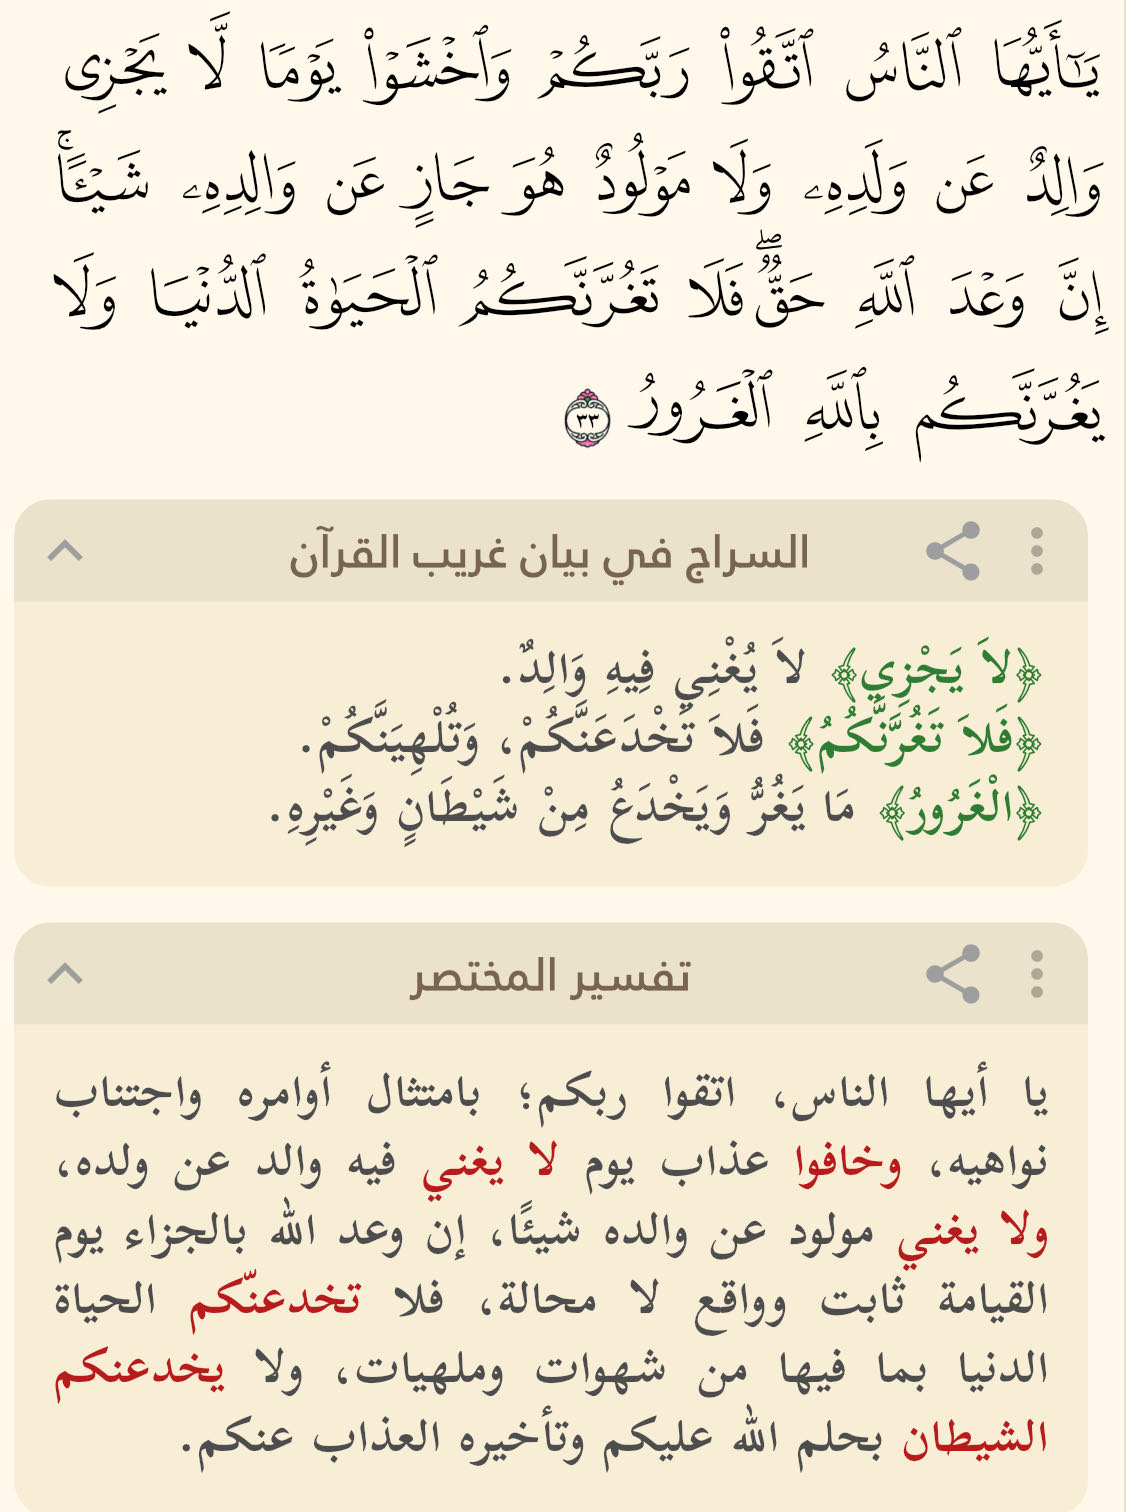 يَـٰٓأَيُّهَا ٱلنَّاسُ ٱتَّقُوا۟ رَبَّكُمْ وَٱخْشَوْا۟ يَوْمًا لَّا يَجْزِى
وَالِدٌ عَن وَلَدِهِۦ وَلَا مَوْلُودٌ هُوَ جَازٍ عَن وَالِدِهِۦ شَيْـًٔا ۚ
إِنَّ وَعْدَ ٱللَّهِ حَقٌّ ۖ فَلَا تَغُرَّنَّكُمُ ٱلْحَيَوٰةُ ٱلدُّنْيَا وَلَا
يَغُرَّنَّكُم بِٱللَّهِ ٱلْغَرُورُ ٣٣
السراج في بيان غريب القرآن
﴿لاَ يَجْزِي﴾ لاَ يُغْنِي فِيهِ وَالِدٌ.
﴿فَلاَ تَغُرَّنَّكُمُ﴾ فَلاَ تَخْدَعَنَّكُمْ، وَتُلْهِيَنَّكُمْ.
﴿الْغَرُورُ﴾ مَا يَغُرُّ وَيَخْدَعُ مِنْ شَيْطَانٍ وَغَيْرِهِ.
تفسير المختصر
يا أيها الناس، اتقوا ربكم؛ بامتثال أوامره واجتناب
نواهيه، وخافوا عذاب يوم لا يغني فيه والد عن ولده،
ولا يغني مولود عن والده شيئًا، إن وعد الله بالجزاء يوم
القيامة ثابت وواقع لا محالة، فلا تخدعنّكم الحياة
الدنيا بما فيها من شهوات وملهيات، ولا يخدعنكم
الشيطان بحلم الله عليكم وتأخيره العذاب عنكم.